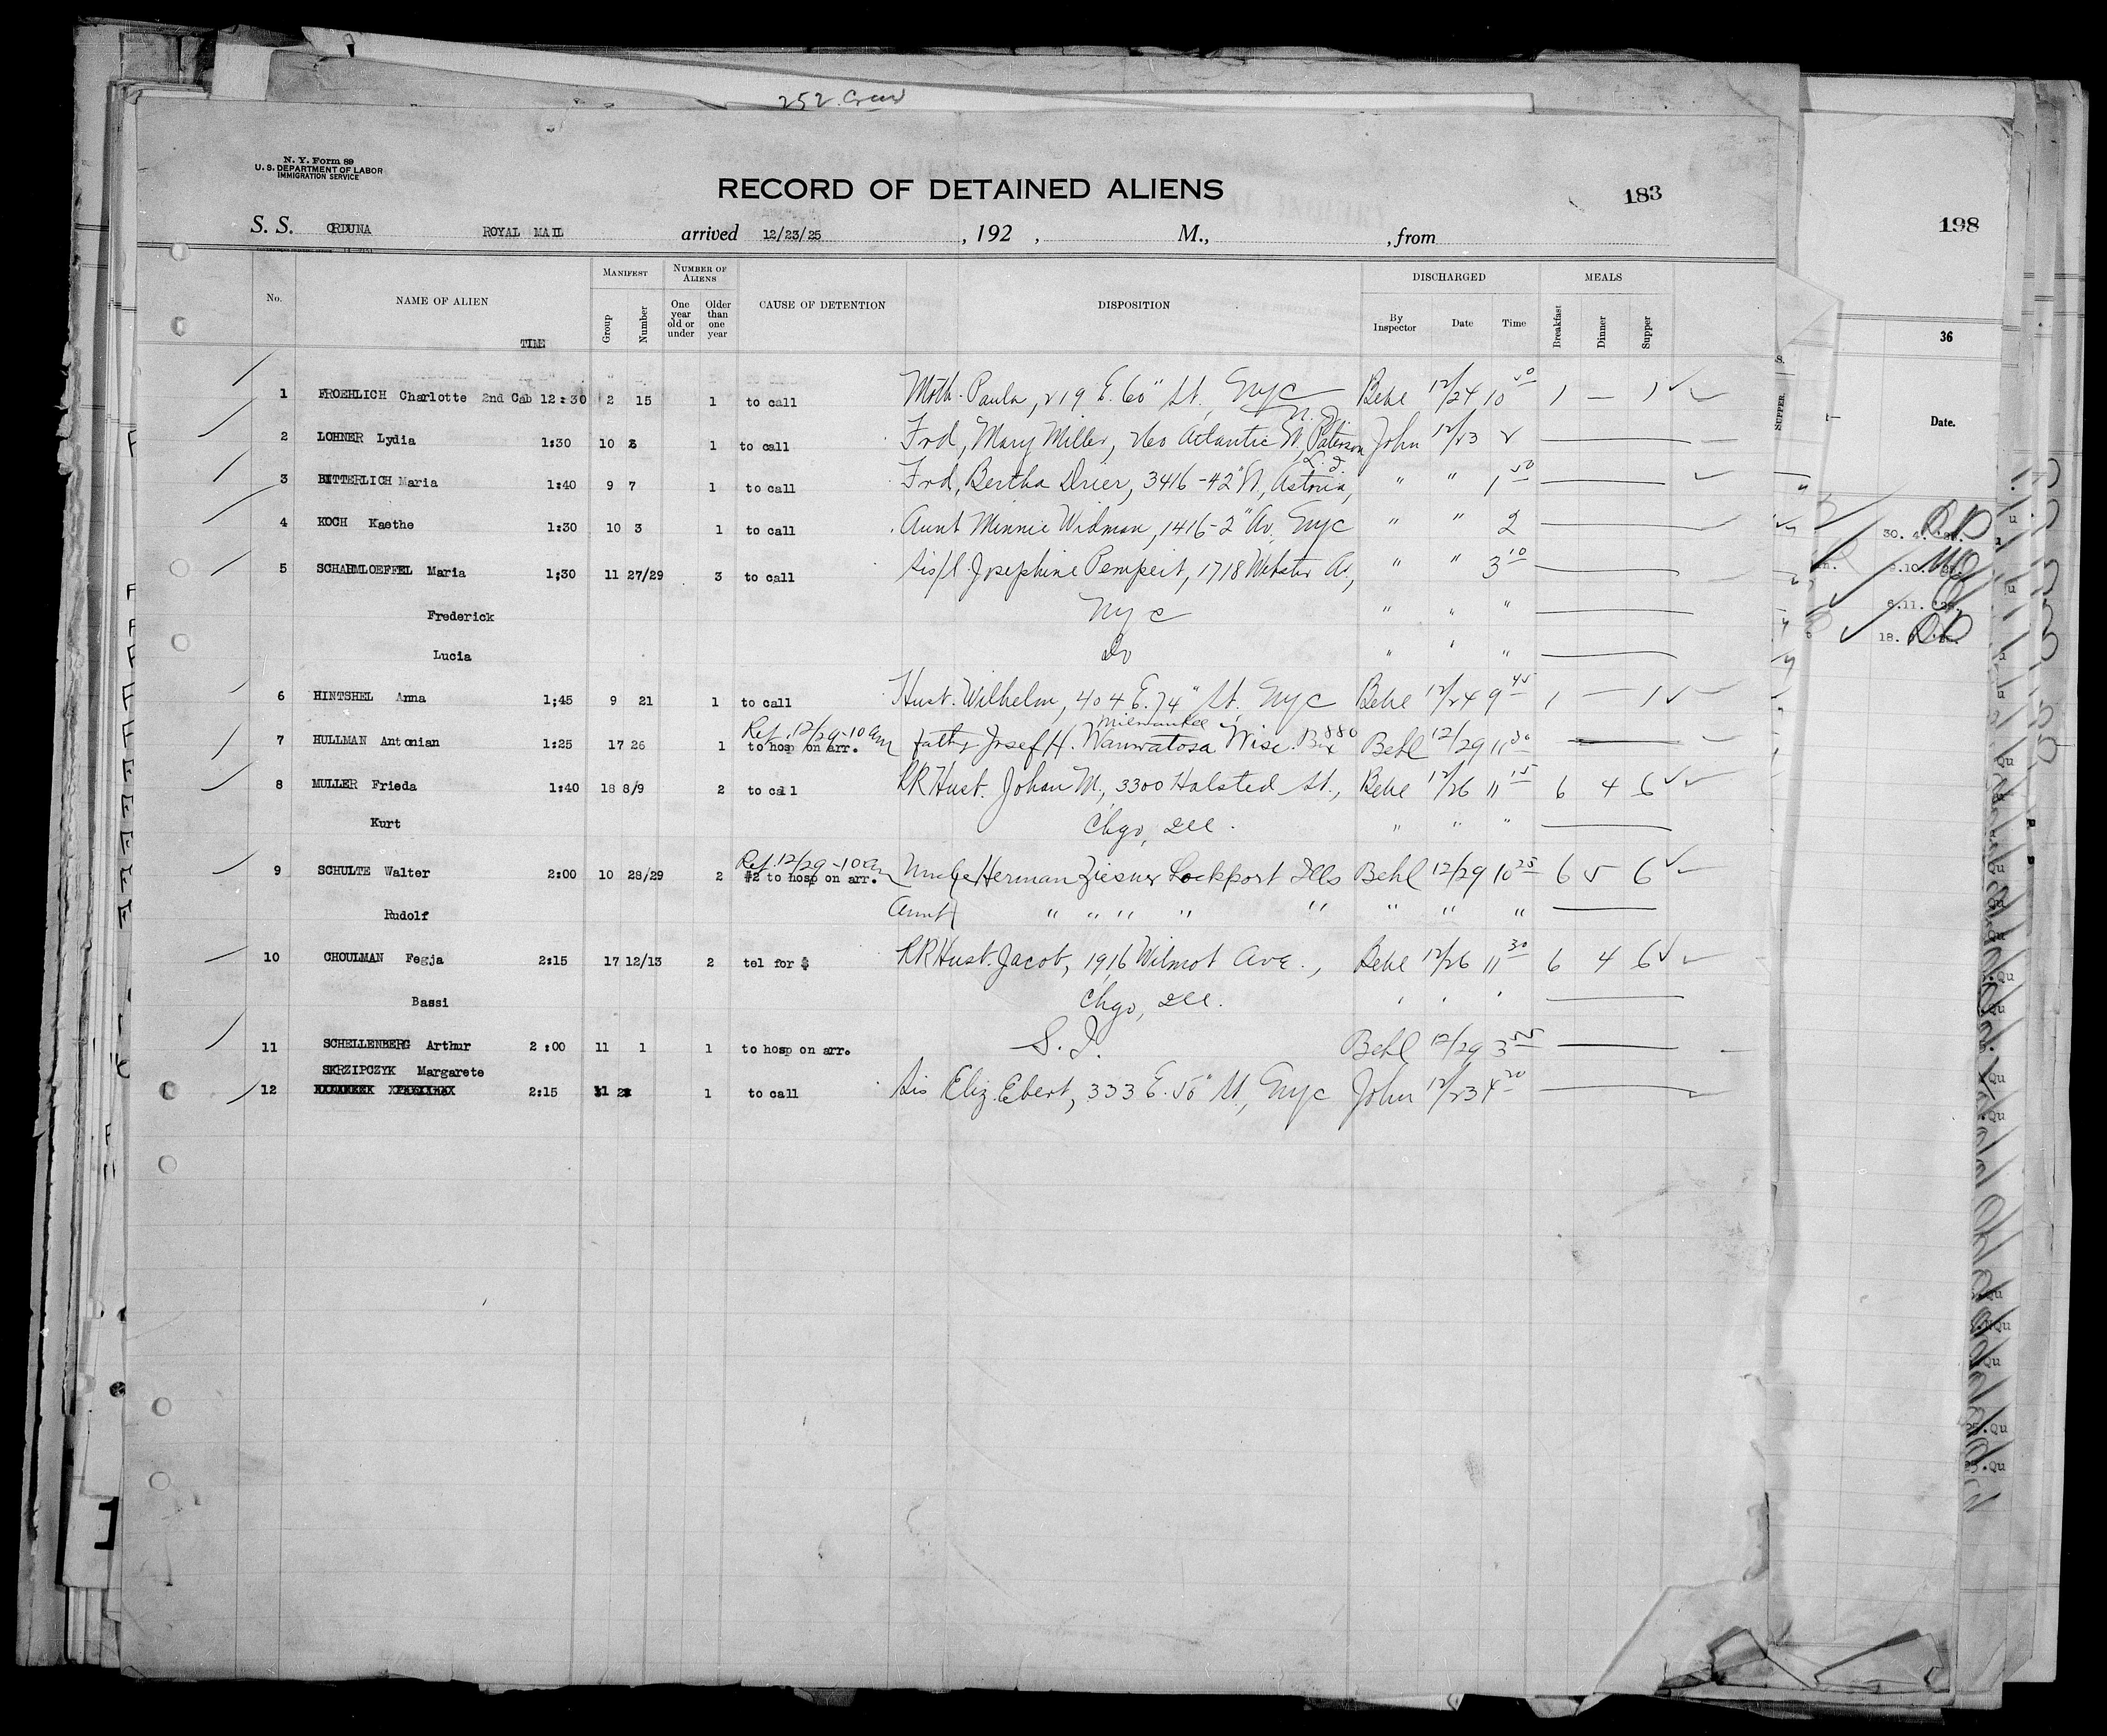 252 Crew
N. Y. Form 89
U. S. DEPARTMENT OF LABOR
IMMIGRATION SERVICE
RECORD OF DETAINED ALIENS
183
198
S. S. ORDUNA ROYAL MAIL arrived 12/23/25 , 192 , M., , from
No. NAME OF ALIEN TIME MANIFEST Group Number NUMBER OF ALIENS One year old or under Older than one year CAUSE OF DETENTION DISPOSITION DISCHARGED By Inspector Date Time MEALS Breakfast Dinner Supper
36
Date.
1 FROEHLICH Charlotte 2nd Cab 12:30 2 15 1 to call Moth. Paula, 219 E. 60" St, Nyc Behl 12/24 10 50 1 — 1
N. J.
2 LOHNER Lydia 1:30 10 1 to call Frd, Mary Miller, 260 Atlantic St, Paterson John 12/23 2
L. I.
3 BITTERLICH Maria 1:40 9 7 1 to call Frd, Bertha Drier, 3416-42" St, Astoria, " " 1 50
4 KOCH Kaethe 1:30 10 3 1 to call Aunt Minnie Widman, 1416-2" Av, Nyc " " 2
5 SCHARMLOEFFEL Maria 1;30 11 27/29 3 to call Sis/l Josephine Pempeit, 1718 Webster Av, " " 3 10
Frederick Nyc " " "
Lucia Do " " "
6 HINTSHEL Anna 1;45 9 21 1 to call Hust. Wilhelm, 404 E. 74" St, Nyc Behl 12/24 9 45 1 — 1
Ref. 12/29-10 am Milwaukee
7 HULLMAN Antonian 1:25 17 26 1 to hosp on arr. father Josef H. Wauwatosa Wisc. Box 880 Behl 12/29 11 30
8 MULLER Frieda 1:40 18 8/9 2 to call RR Hust. Johan M, 3300 Halsted St., Behl 12/26 11 15 6 4 6
Kurt Chgo, Ill. " " "
Ref. 12/29-10 am
9 SCHULTE Walter 2:00 10 28/29 2 #2 to hosp on arr. Uncle Herman Ziesner Lockport Ills Behl 12/29 10 25 6 5 6
Rudolf Aunt " " " " " " " "
10 CHOULMAN Fegja 2:15 17 12/13 2 tel for $ RR Hust. Jacob, 1916 Wilmot Ave., Behl 12/26 11 30 6 4 6
Bassi Chgo, Ill. " " "
11 SCHELLENBERG Arthur 2:00 11 1 1 to hosp on arr. S. I. Behl 12/29 3 55
SKRZIPCZYK Margarete
12 2:15 11 1 to call Sis Eliz. Ebert, 333 E. 55" St, Nyc John 12/23 4 20